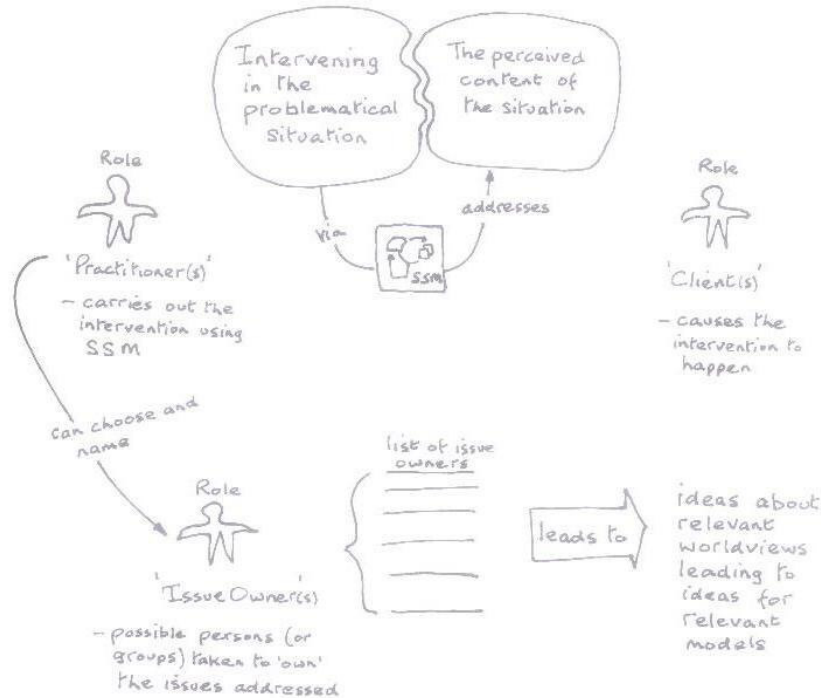 Intervening
in the
problematical
situation
The perceived
content of
the situation
via
SSM
addresses
Role
'Practitioner(s)'
- carries out the
intervention using
SSM
Role
'Client(s)'
- causes the
intervention to
happen
can choose and
name
Role
'Issue Owner(s)
- possible persons (or
groups) taken to 'own'
the issues addressed
list of issue
owners
leads to
ideas about
relevant
worldviews
leading to
ideas for
relevant
models